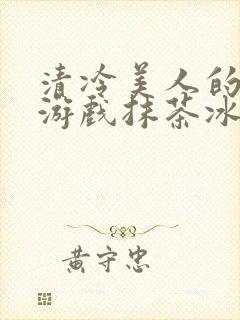 清冷美人的
游戏抹茶冰
黄守忠